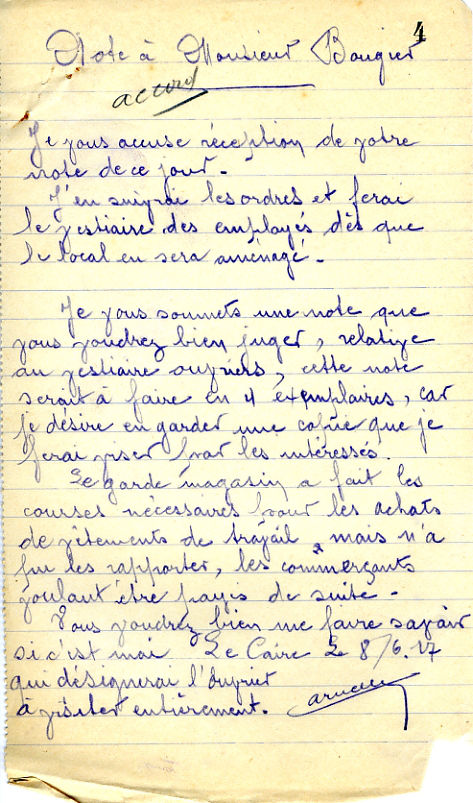 4
Note à Monsieur Bougier
accord
Je vous accuse réception de votre
note de ce jour.-
J'en suivrai les ordres et ferai
le vestiaire des employés dès que
le local en sera aménagé.-
Je vous soumets une note que
vous voudrez bien juger, relative
au vestiaire ouvriers, cette note
serait à faire en 4 exemplaires, car
je désire en garder une copie que je
ferai viser par les intéressés.
Le garde magasin a fait les
courses nécessaires pour les achats
de vêtements de travail, mais n'a
pu les rapporter, les commerçants
voulant être payés de suite.-
Vous voudrez bien me faire savoir
si c'est moi Le Caire le 8/6.17
qui désignerai l'ouvrier
à visiter entièrement.